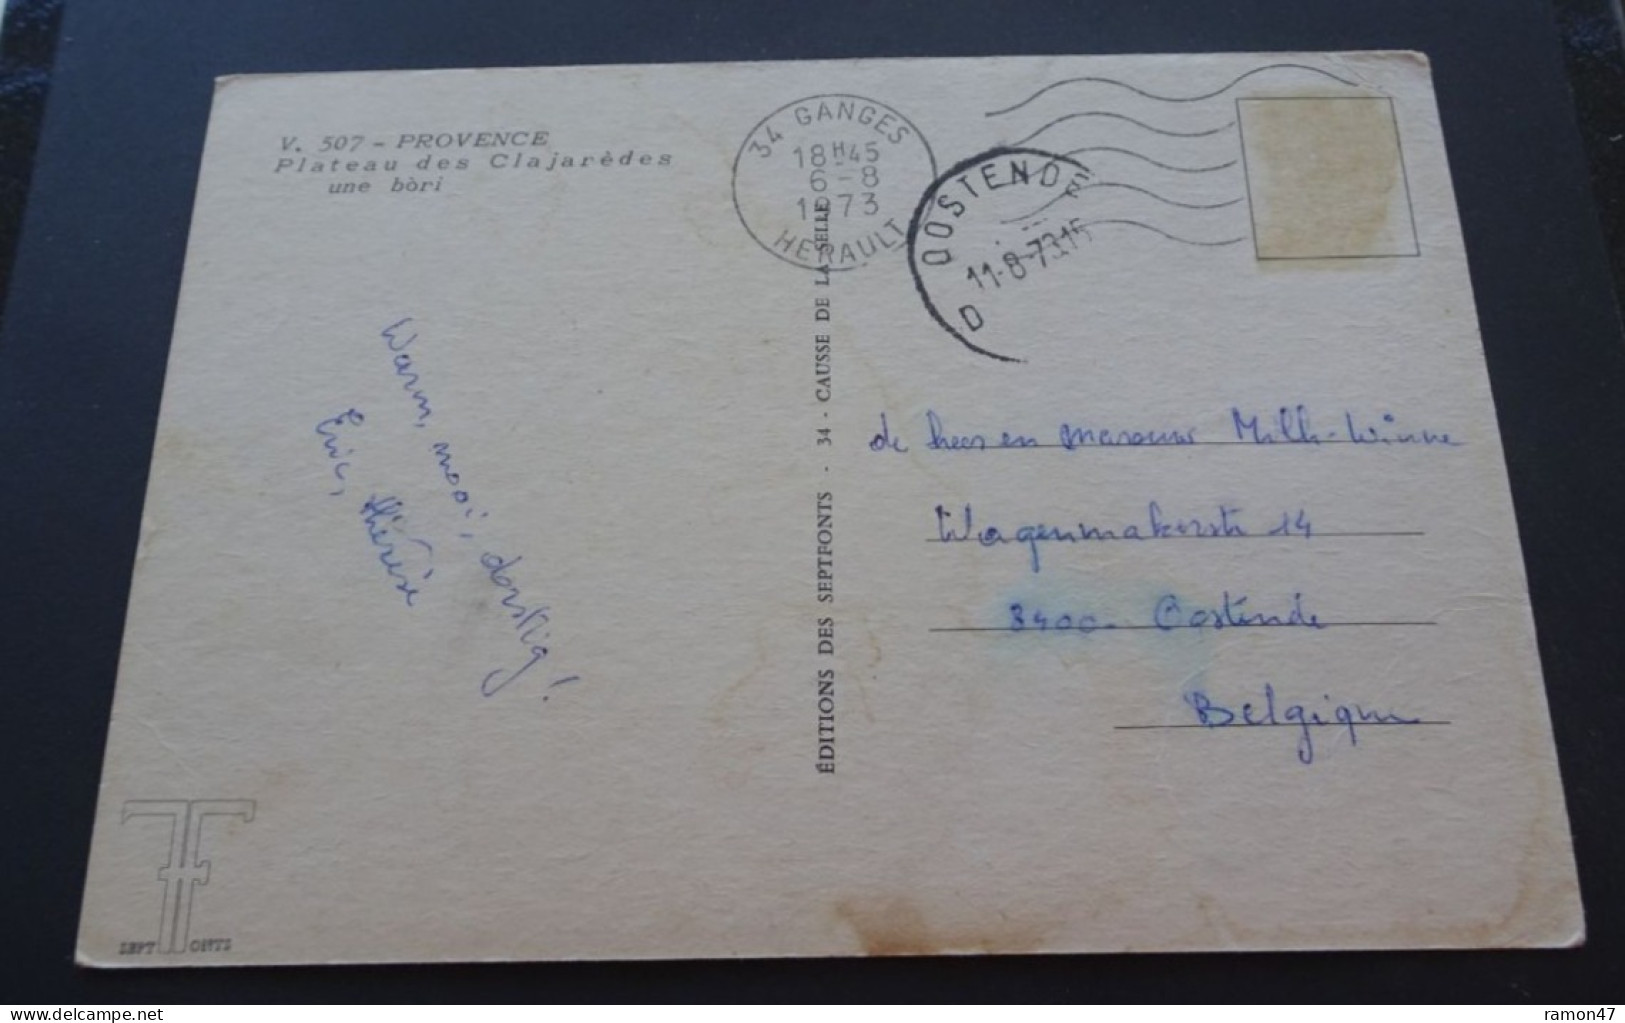 V. 507 - PROVENCE
Plateau des Clajarèdes
une bòri
34 GANGES
18H45
6-8
1973
HERAULT
OOSTENDE
11-8-73 15
D
Warm, mooi, dorstig!
Eric, Thérèse
ÉDITIONS DES SEPTFONTS - 34 - CAUSSE DE LA SELLE
de heer en
Wagenmakerstr 14
8400 - Oostende
Belgique
SEPT FONTS
ramon47